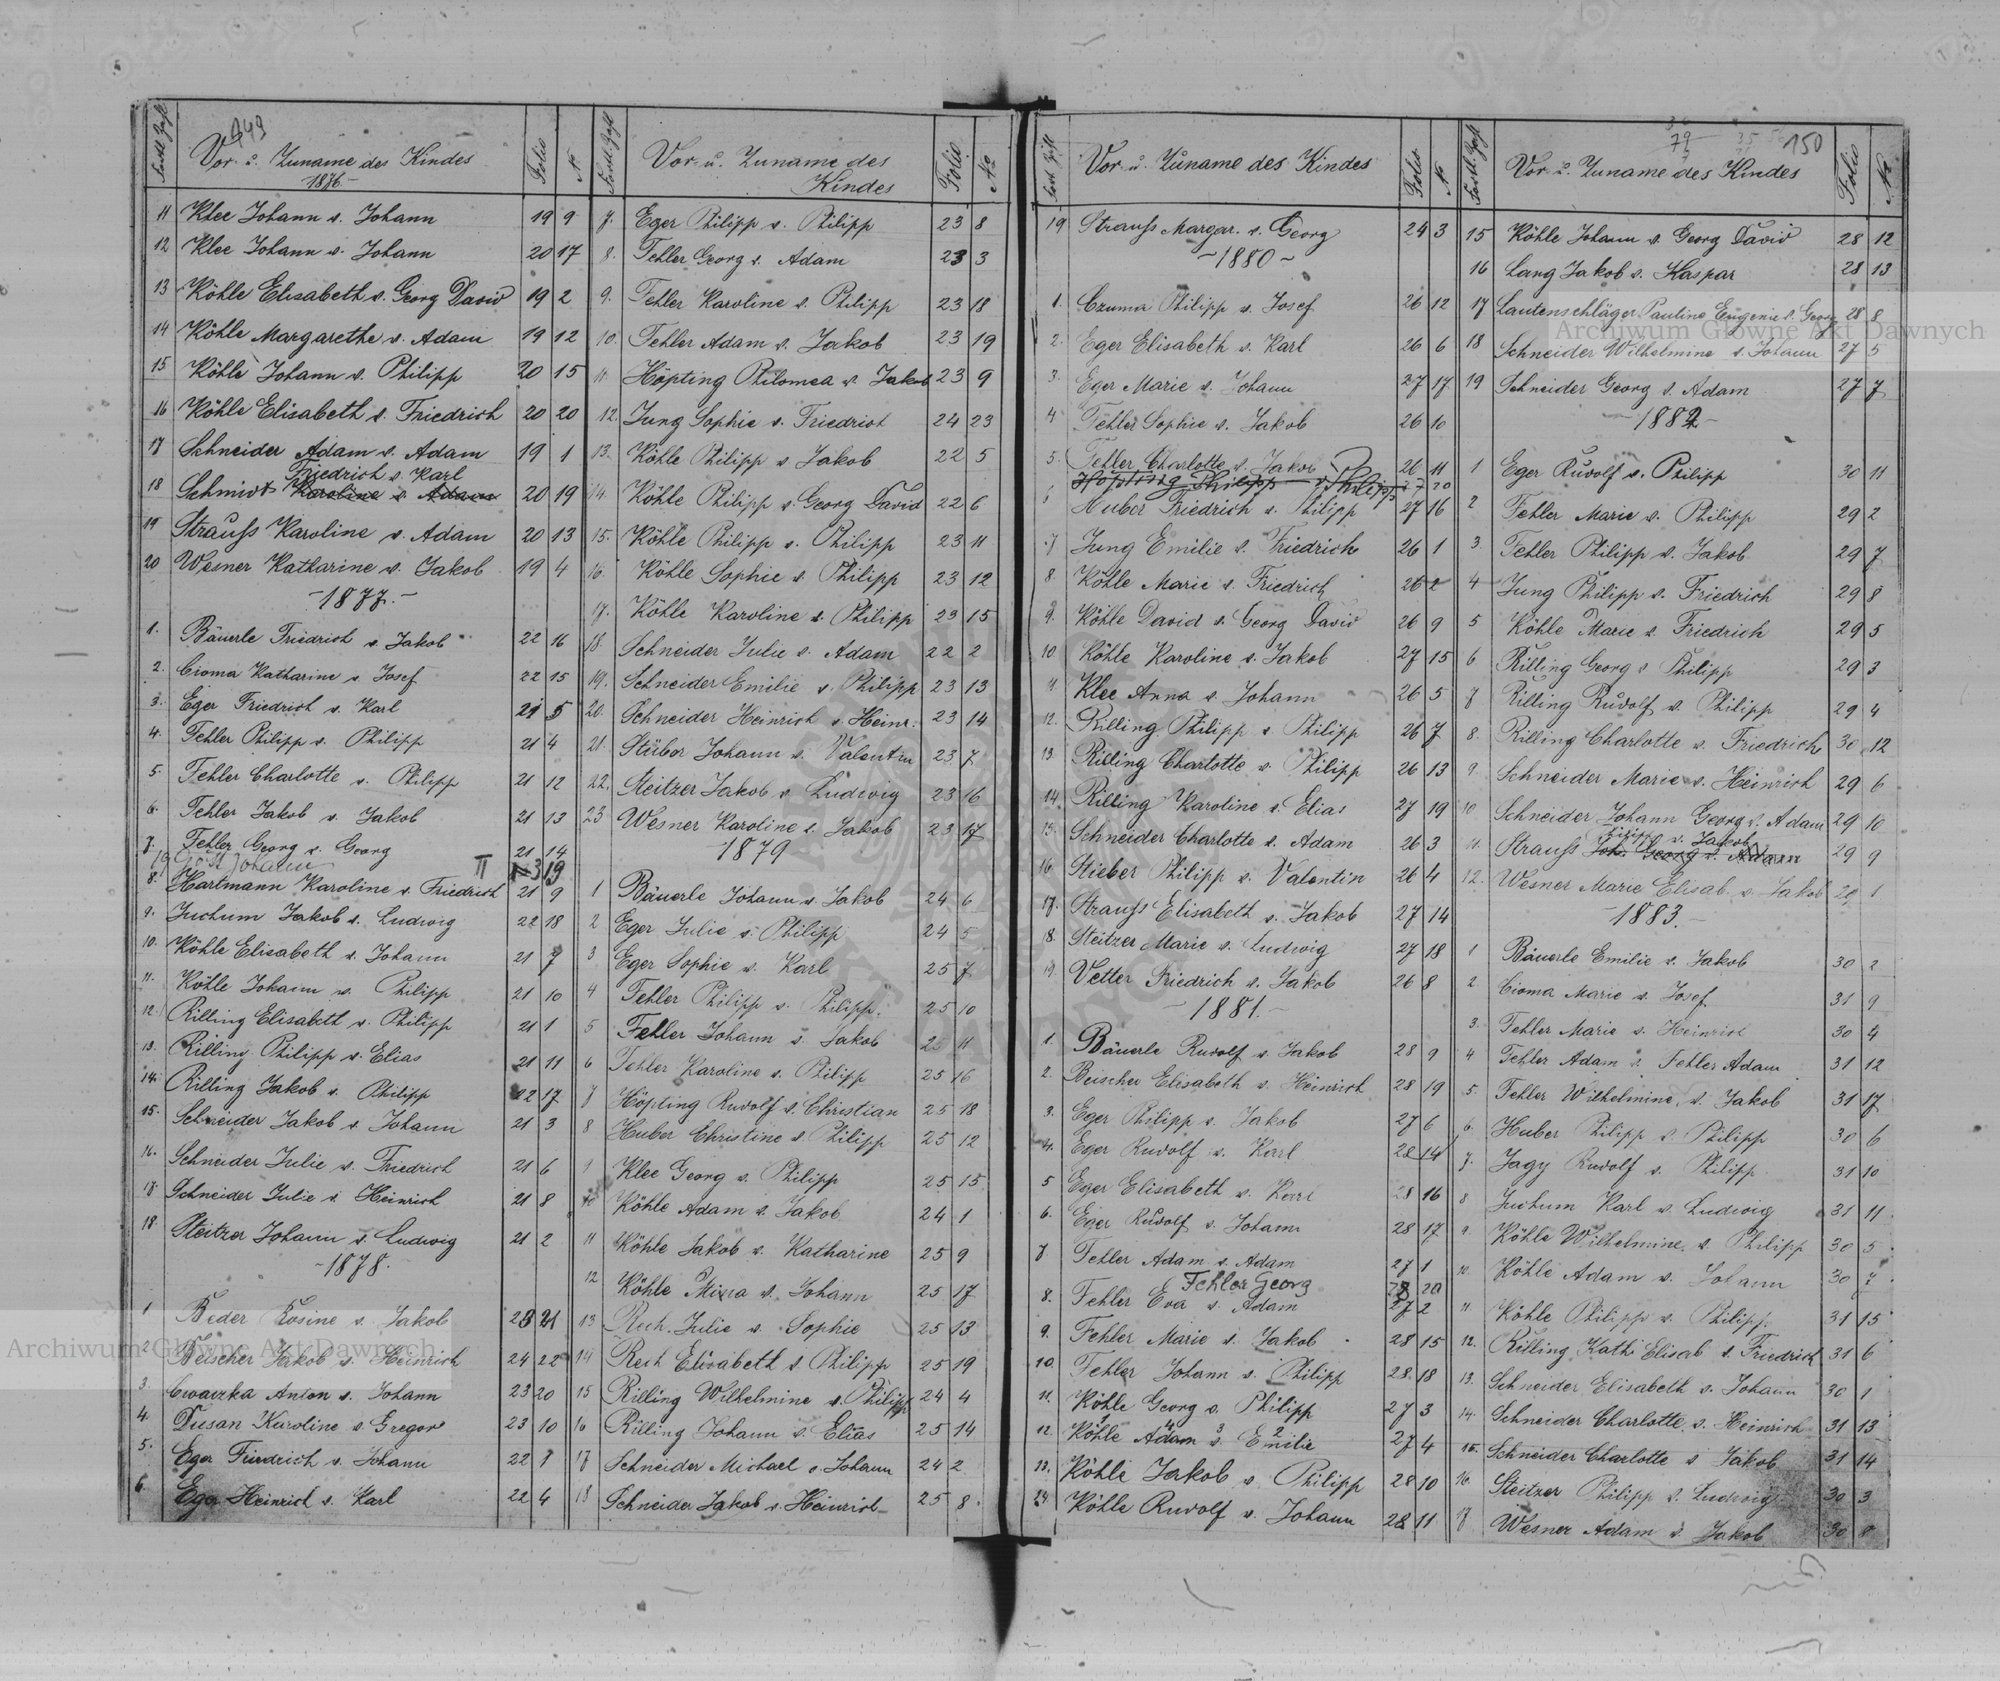 149
Vor- u. Zuname des Kindes
1876
Folio
№
11 Klee Johann v. Johann 19 9
12 Klee Johann v. Johann 20 17
13 Köhle Elisabeth v. Georg David 19 2
14 Köhle Margarethe v. Adam 19 12
15 Köhle Johann v. Philipp 20 15
16 Köhle Elisabeth v. Friedrich 20 20
17 Schneider Adam v. Adam 19 1
Friedrich v. Karl
18 Schmidt Karoline v. Adam 20 19
19 Strauß Karoline v. Adam 20 13
20 Wesner Katharine v. Jakob 19 4
-1877.-
1. Bäuerle Friedrich v. Jakob 22 16
2. Cioma Katharine v. Josef 22 15
3. Eger Friedrich v. Karl 21 5
4. Fehler Philipp v. Philipp 21 4
5. Fehler Charlotte v. Philipp 21 12
6. Fehler Jakob v. Jakob 21 13
7. Fehler Georg v. Georg 21 14
Johann II 3 19
8. Hartmann Karoline v. Friedrich 21 9
9. Juchum Jakob v. Ludwig 22 18
10. Köhle Elisabeth v. Johann 21 7
11. Köhle Johann v. Philipp 21 10
12. Rilling Elisabeth v. Philipp 21 1
13. Rilling Philipp v. Elias 21 11
14. Rilling Jakob v. Philipp 22 17
15. Schneider Jakob v. Johann 21 3
16. Schneider Julie v. Friedrich 21 6
17. Schneider Julie v. Heinrich 21 8
18. Steitzer Johann v. Ludwig 21 2
-1878.-
1 Beder Rosine v. Jakob 23 21
2 Beischer Jakob v. Heinrich 24 22
3. Cwaczka Anton v. Johann 23 20
4. Dusan Karoline v. Gregor 23 10
5. Eger Friedrich v. Johann 22 1
6. Eger Heinrich v. Karl 22 4
Vor- u. Zuname des
Kindes
Folio
№
7. Eger Philipp v. Philipp 23 8
8. Fehler Georg v. Adam 23 3
9. Fehler Karoline v. Philipp 23 18
10. Fehler Adam v. Jakob 23 19
11. Höpting Philomea v. Jakob 23 9
12. Jung Sophie v. Friedrich 24 23
13. Köhle Philipp v. Jakob 22 5
14. Köhle Philipp v. Georg David 22 6
15. Köhle Philipp v. Philipp 23 11
16. Köhle Sophie v. Philipp 23 12
17. Köhle Karoline v. Philipp 23 15
18. Schneider Julie v. Adam 22 2
19. Schneider Emilie v. Philipp 23 13
20. Schneider Heinrich v. Heinr. 23 14
21. Stüber Johann v. Valentin 23 7
22. Steitzer Jakob v. Ludwig 23 16
23 Wesner Karoline v. Jakob 23 17
1879
1 Bäuerle Johann v. Jakob 24 6
2 Eger Julie v. Philipp 24 5
3 Eger Sophie v. Karl 25 7
4 Fehler Philipp v. Philipp. 25 10
5 Fehler Johann v. Jakob 25 11
6 Fehler Karoline v. Philipp 25 16
7 Höpting Rudolf v. Christian 25 18
8 Huber Christine v. Philipp 25 12
9 Klee Georg v. Philipp 25 15
10 Köhle Adam v. Jakob 24 1
11 Köhle Jakob v. Katharine 25 9
12 Köhle Mina v. Johann 25 17
13 Rech Julie v. Sophie 25 13
14 Rech Elisabeth v. Philipp 25 19
15 Rilling Wilhelmine v. Philipp 24 4
16 Rilling Johann v. Elias 25 14
17 Schneider Michael v. Johann 24 2
18 Schneider Jakob v. Heinrich 25 8
Vor- u. Zuname des Kindes
Folio
№
19 Strauß Margar. v. Georg 24 3
-1880-
1. Czuma Philipp v. Josef 26 12
2. Eger Elisabeth v. Karl 26 6
3. Eger Marie v. Johann 27 17
4 Fehler Sophie v. Jakob 26 10
5. Fehler Charlotte v. Jakob 26 11
Höpting Philipp v. Philipp 27 20
Huber Friedrich v. Philipp 27 16
7 Jung Emilie v. Friedrich 26 1
8. Köhle Marie v. Friedrich 26 2
9. Köhle David v. Georg David 26 9
10 Köhle Karoline v. Jakob 27 15
11 Klee Anna v. Johann 26 5
12. Rilling Philipp v. Philipp 26 7
13. Rilling Charlotte v. Philipp 26 13
14. Rilling Karoline v. Elias 27 19
15. Schneider Charlotte v. Adam 26 3
16 Stieber Philipp v. Valentin 26 4
17. Strauß Elisabeth v. Jakob 27 14
18. Steitzer Marie v. Ludwig 27 18
19. Vetter Friedrich v. Jakob 26 8
-1881.-
1. Bäuerle Rudolf v. Jakob 28 9
2. Beischer Elisabeth v. Heinrich 28 19
3. Eger Philipp v. Jakob 27 6
4. Eger Rudolf v. Karl 28 14
5 Eger Elisabeth v. Karl 28 16
6. Eger Rudolf v. Johann 28 17
7 Fehler Adam v. Adam 27 1
Fehler Georg 28 20
8. Fehler Eva v. Adam 27 2
9. Fehler Marie v. Jakob 28 15
10. Fehler Johann v. Philipp 28 18
11. Köhle Georg v. Philipp 27 3
12. Köhle Adam v. Emilie 27 4
13. Köhle Jakob v. Philipp 28 10
14. Köhle Rudolf v. Johann 28 11
150
Vor- u. Zuname des Kindes
Folio
№
15 Köhle Johann v. Georg David 28 12
16 Lang Jakob v. Kaspar 28 13
17 Lautenschläger Pauline Eugenie v. Georg 28 8
Archiwum Główne Akt Dawnych
18 Schneider Wilhelmine v. Johann 27 5
19 Schneider Georg v. Adam 27 7
-1882-
1 Eger Rudolf v. Philipp 30 11
2 Fehler Marie v. Philipp 29 2
3. Fehler Philipp v. Jakob 29 7
4 Jung Philipp v. Friedrich 29 8
5 Köhle Marie v. Friedrich 29 5
6 Rilling Georg v. Philipp 29 3
7 Rilling Rudolf v. Philipp 29 4
8. Rilling Charlotte v. Friedrich 30 12
9. Schneider Marie v. Heinrich 29 6
10 Schneider Johann Georg v. Adam 29 10
v. Jakob
11. Strauß Joh. Georg v. Adam 29 9
12. Wesner Marie Elisab. v. Jakob 29 1
-1883.-
1 Bäuerle Emilie v. Jakob 30 2
2 Cioma Marie v. Josef 31 9
3. Fehler Marie v. Heinrich 30 4
4 Fehler Adam v. Fehler Adam 31 12
5. Fehler Wilhelmine v. Jakob 31 17
6. Huber Philipp v. Philipp 30 6
7. Jagy Rudolf v. Philipp 31 10
8 Juchum Karl v. Ludwig 31 11
9. Köhle Wilhelmine v. Philipp 30 5
10. Köhle Adam v. Johann 30 7
11. Köhle Philipp v. Philipp. 31 15
12. Rilling Kath. Elisab. v. Friedrich 31 6
13. Schneider Elisabeth v. Johann 30 1
14. Schneider Charlotte v. Heinrich 31 13
15. Schneider Charlotte v. Jakob 31 14
16. Steitzer Philipp v. Ludwig 30 3
17 Wesner Adam v. Jakob 30 8
Archiwum Główne Akt Dawnych